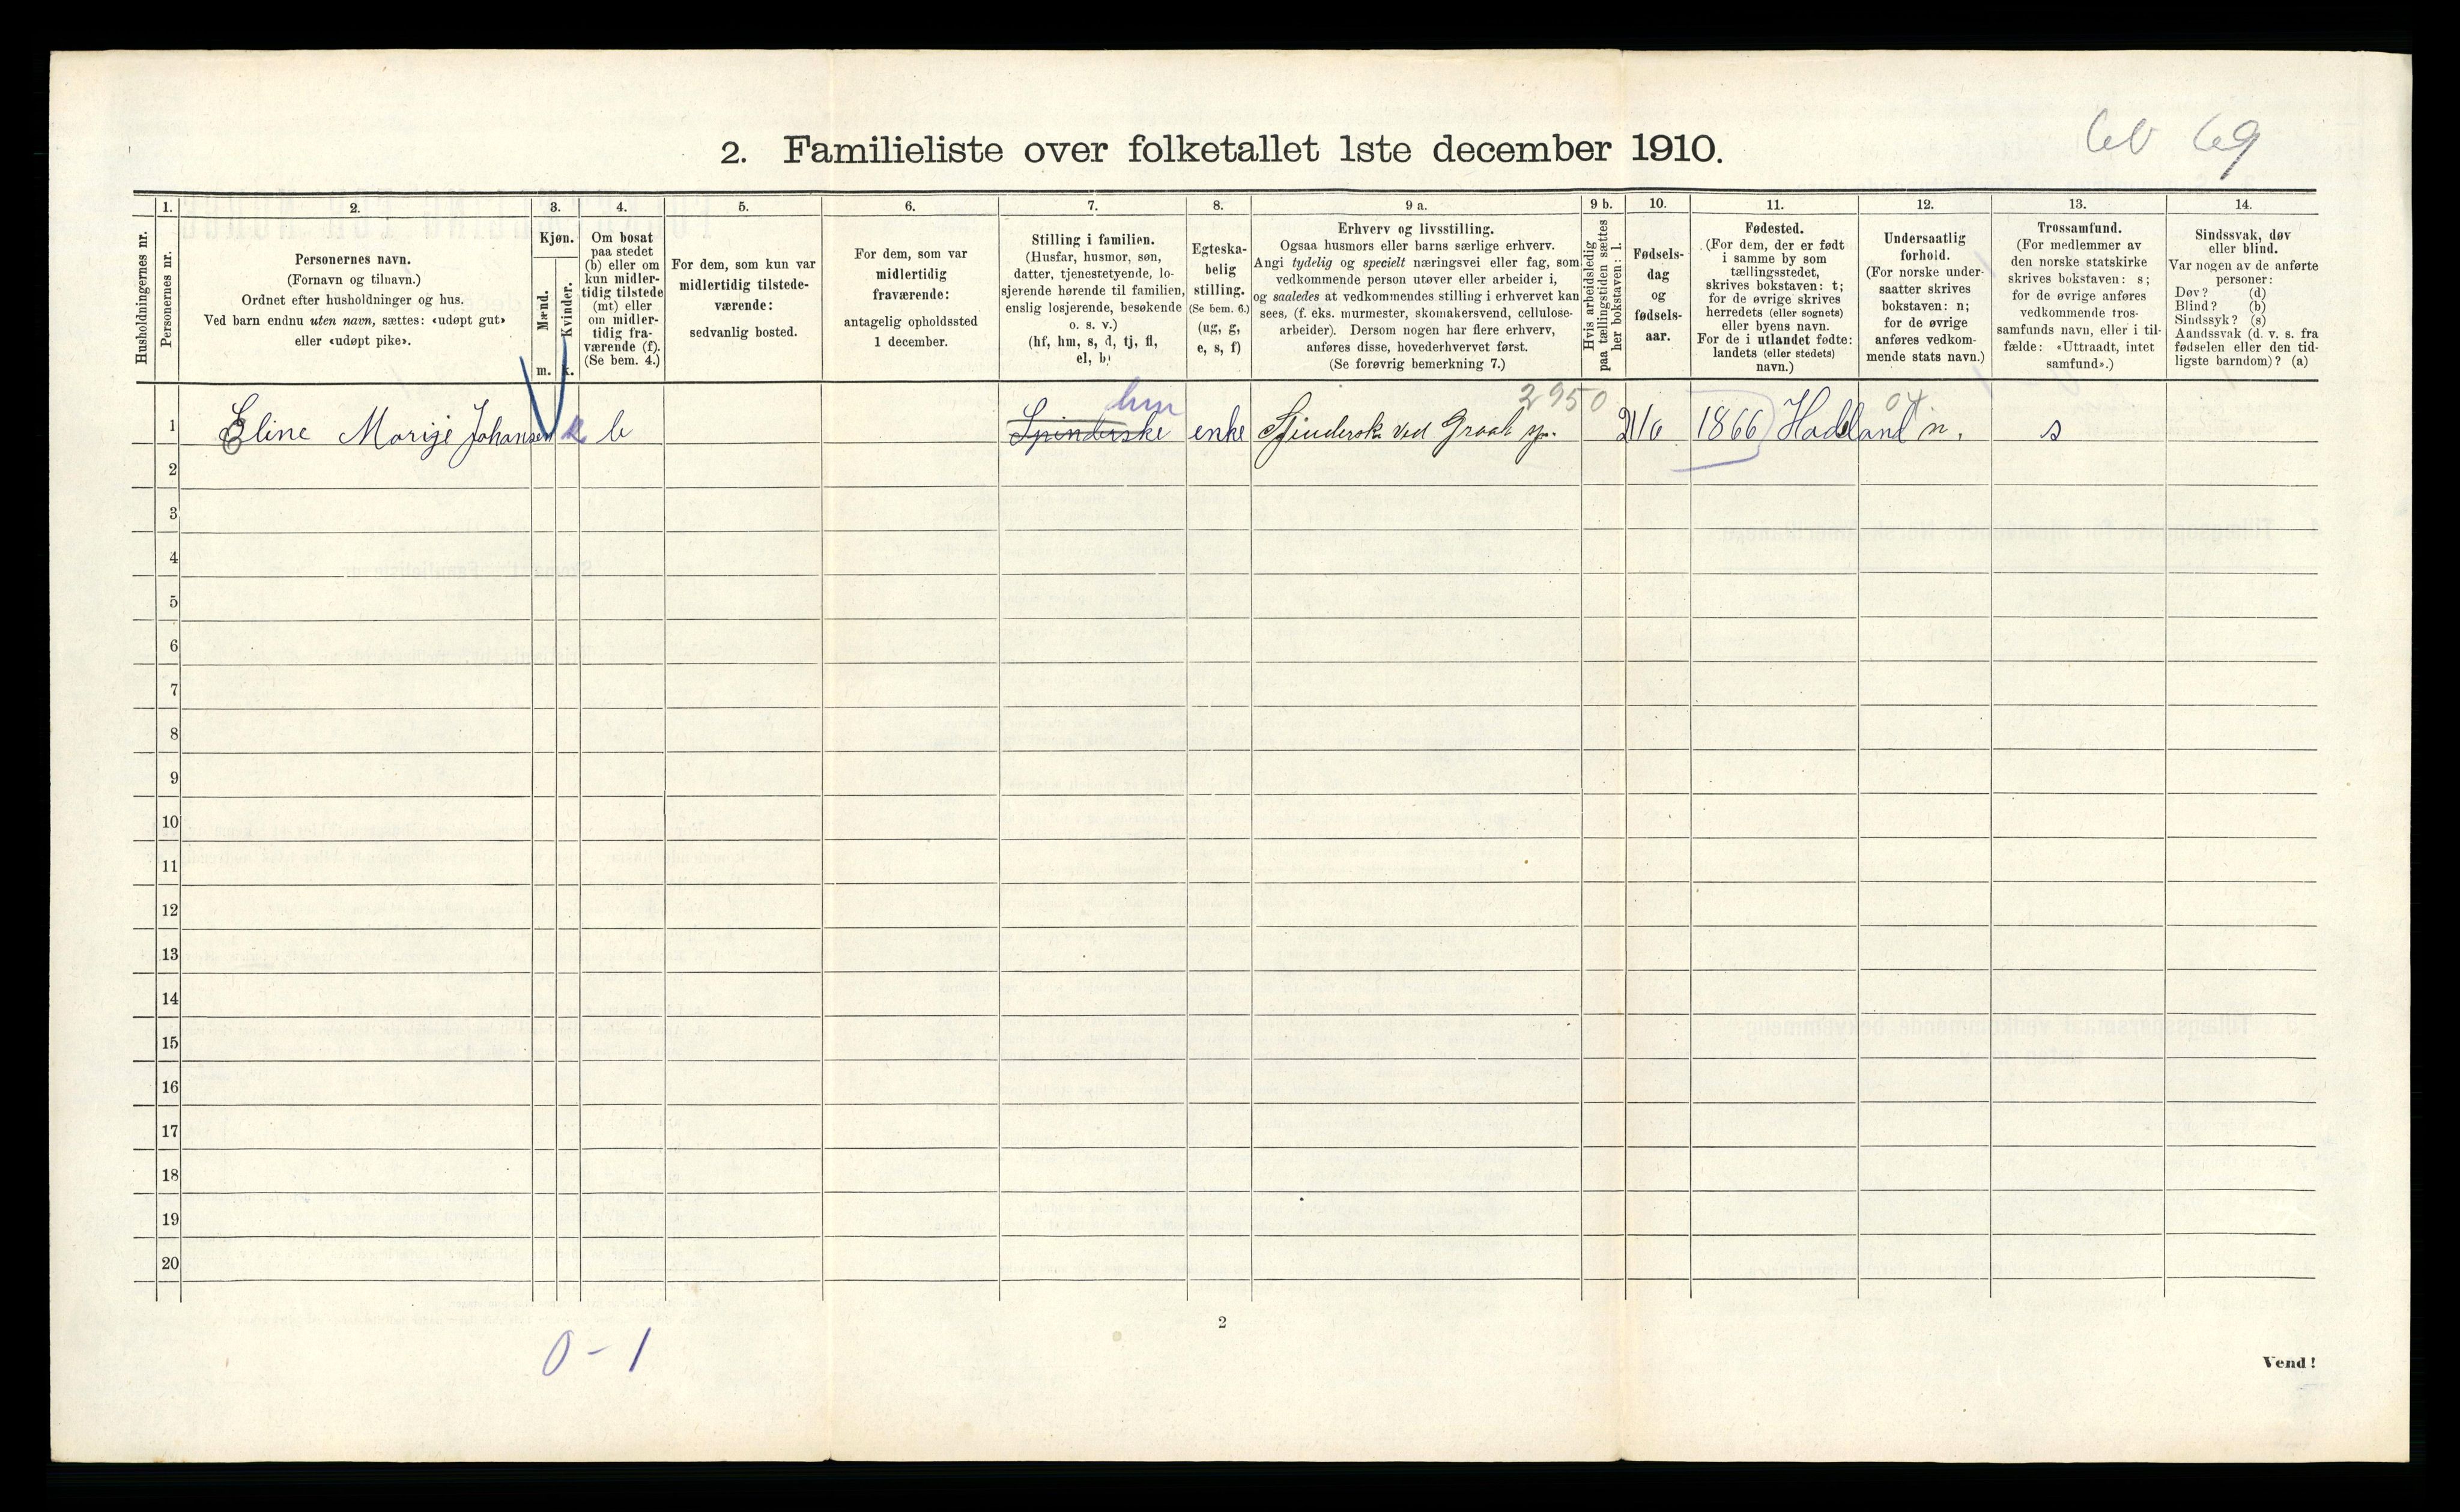 69
2. Familieliste over folketallet 1ste december 1910.
Husholdningernes nr.
1.
Personernes nr.
2.
Personernes navn.
(Fornavn og tilnavn.)
Ordnet efter husholdninger og hus.
Ved barn endnu uten navn, sættes: «udøpt gut»
eller «udøpt pike».
3.
Kjøn.
Mænd.
m.
Kvinder.
k.
4.
Om bosat
paa stedet
(b) eller om
kun midler-
tidig tilstede
(mt) eller
om midler-
tidig fra-
værende (f).
(Se bem. 4.)
5.
For dem, som kun var
midlertidig tilstede-
værende:
sedvanlig bosted.
6.
For dem, som var
midlertidig
fraværende:
antagelig opholdssted
1 december.
7.
Stilling i familien.
(Husfar, husmor, søn,
datter, tjenestetyende, lo-
sjerende hørende til familien,
enslig losjerende, besøkende
o. s. v.)
(hf, hm, s, d, tj, fl,
el, b)
8.
Egteska-
belig
stilling.
(Se bem. 6.)
(ug, g,
e, s, f)
9 a.
Erhverv og livsstilling.
Ogsaa husmors eller barns særlige erhverv.
Angi tydelig og specielt næringsvei eller fag, som
vedkommende person utøver eller arbeider i,
og saaledes at vedkommendes stilling i erhvervet kan
sees, (f. eks. murmester, skomakersvend, cellulose-
arbeider). Dersom nogen har flere erhverv,
anføres disse, hovederhvervet først.
(Se forøvrig bemerkning 7.)
9 b.
Hvis arbeidsledig
paa tællingstiden sættes
her bokstaven: l.
10.
Fødsels-
dag
og
fødsels-
aar.
11.
Fødested.
(For dem, der er født
i samme by som
tællingsstedet,
skrives bokstaven: t;
for de øvrige skrives
herredets (eller sognets)
eller byens navn.
For de i utlandet fødte:
landets (eller stedets)
navn.)
12.
Undersaatlig
forhold.
(For norske under-
saatter skrives
bokstaven: n;
for de øvrige
anføres vedkom-
mende stats navn.)
13.
Trossamfund.
(For medlemmer av
den norske statskirke
skrives bokstaven: s;
for de øvrige anføres
vedkommende tros-
samfunds navn, eller i til-
fælde: «Uttraadt, intet
samfund».)
14.
Sindssvak, døv
eller blind.
Var nogen av de anførte
personer:
Døv? (d)
Blind? (b)
Sindssyk? (s)
Aandssvak (d. v. s. fra
fødselen eller den tid-
ligste barndom)? (a)
hm 2950 04
1 Eline Marije Johansen k b Spinderske enke Spindersk ved Graah sp. 21/6 1866 Hadeland n. s
2
3
4
5
6
7
8
9
10
11
12
13
14
15
16
17
18
19
20
2
0 - 1
Vend!